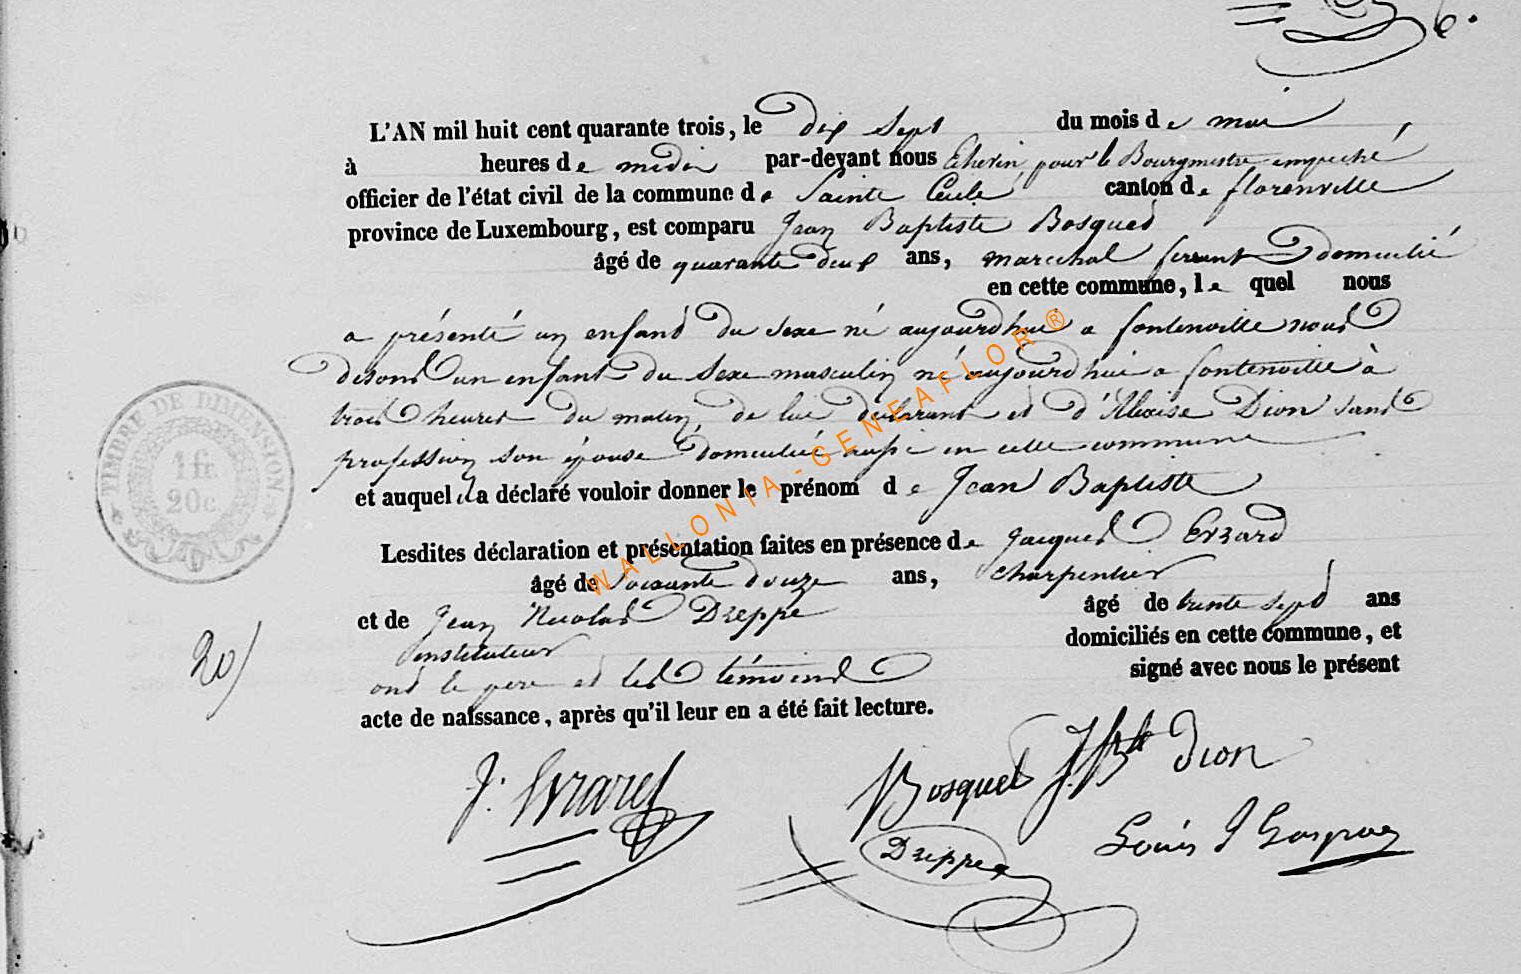 6.
L'AN mil huit cent quarante trois, le dix Sept du mois de mai
à heures de midi par-devant nous Echevin pour le Bourgmestre empeché
officier de l'état civil de la commune de Sainte Cecile canton de florenville
province de Luxembourg, est comparu Jean Baptiste Bosqued
âgé de quarante deux ans, marechal ferrant domicilié
en cette commune, le quel nous
a présenté un enfant du sexe né aujourd'hui a fontenoille nous
disons un enfant du Sexe masculin né aujourd'hui a fontenoille à
trois heures du matin, de lui déclarant et d' Dion sans
profession son épouse domiciliée aussi en cette commune
et auquel il a déclaré vouloir donner le prénom de Jean Baptiste
Lesdites déclaration et présentation faites en présence de Jacques Evrard
âgé de soixante douze ans, charpentier
et de Jean Nicolas Dreppe âgé de trente sept ans
instituteur domiciliés en cette commune, et
ont le pere et les témoins signé avec nous le présent
acte de naissance, après qu'il leur en a été fait lecture.
J. Evrard
Bosqued J. Bte Dion
Dreppe
Louis J
20/
TIMBRE DE DIMENSION
1 fr.
20 c.
WALLONIA-GENEAFLOR®